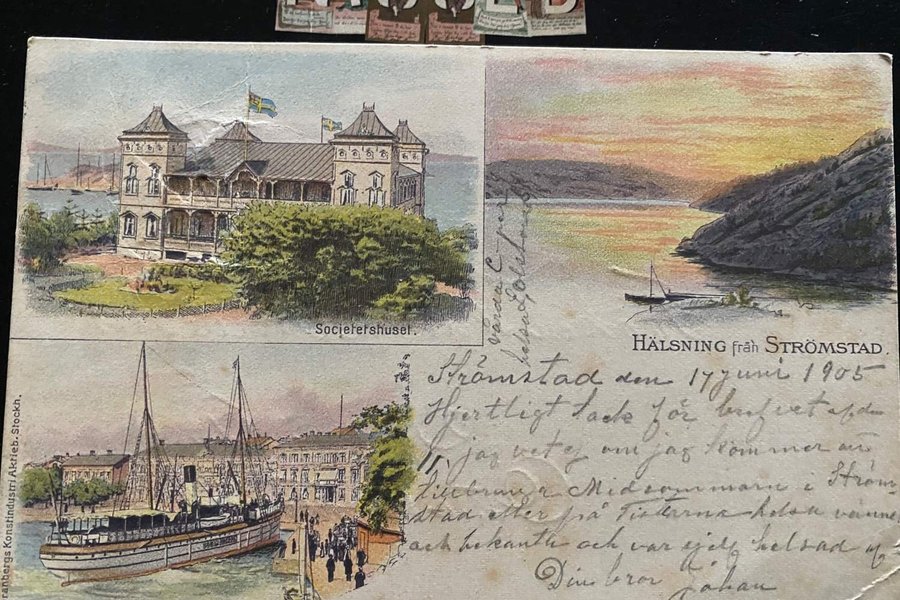 Societetshuset.
HÄLSNING från STRÖMSTAD.
ranbergs Konstindustri Aktieb. Stockh.
Strömstad den 17 juni 1905
Hjertligt tack för brefvet
jag vet ej om jag kommer att
tillbringa Midsommarn i Ström-
stad eller på Tistlarna helsa vänner
och bekanta och var sjelf helsad af
Din bror Johan